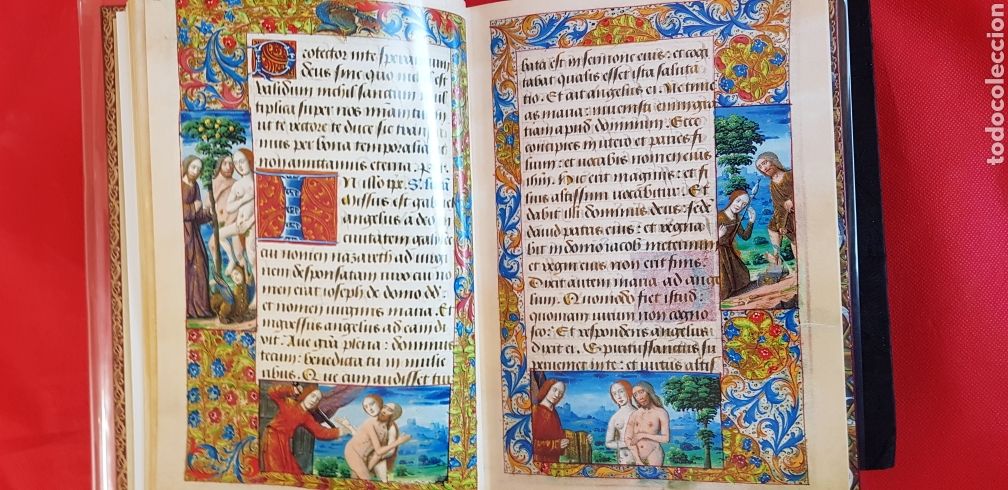 Protector in te sperantium
deus sine quo nichil est
validum nichil sanctum mul
tiplica super nos miām tuam
ut te rectore te duce sic transea
mus per bona temporalia ut
non amittamus eterna. Per.
In illo tpe.
Missus est gabriel
angelus a deo in
civitatem galilee
cui nomen nazareth ad virgi
nem desponsatam viro cui no
men erat ioseph de domo dd:
et nomen virginis maria. Et
ingressus angelus ad eam di
xit. Ave grā plena: dominus
tecum: benedicta tu in mulie
ribus. Que cum audisset tur
bata est in sermone eius: et cogi
tabat qualis esset ista saluta
tio. Et ait angelus ei. Ne time
as maria: invenisti enim grā
tiam apud dominum. Ecce
concipies in utero et paries fi
lium: et vocabis nomen eius
ihm. Hic erit magnus: et fi
lius altissimi vocabitur. Et
dabit illi dominus deus: sede
david patris eius: et regna
bit in domo iacob in eternum
et regni eius non erit finis.
Dixit autem maria ad ange
lum. Quomodo fiet istud
quoniam virum non cogno
sco? Et respondens angelus
dixit ei. Spiritussanctus su
perveniet in te: et virtus altis
todocoleccion